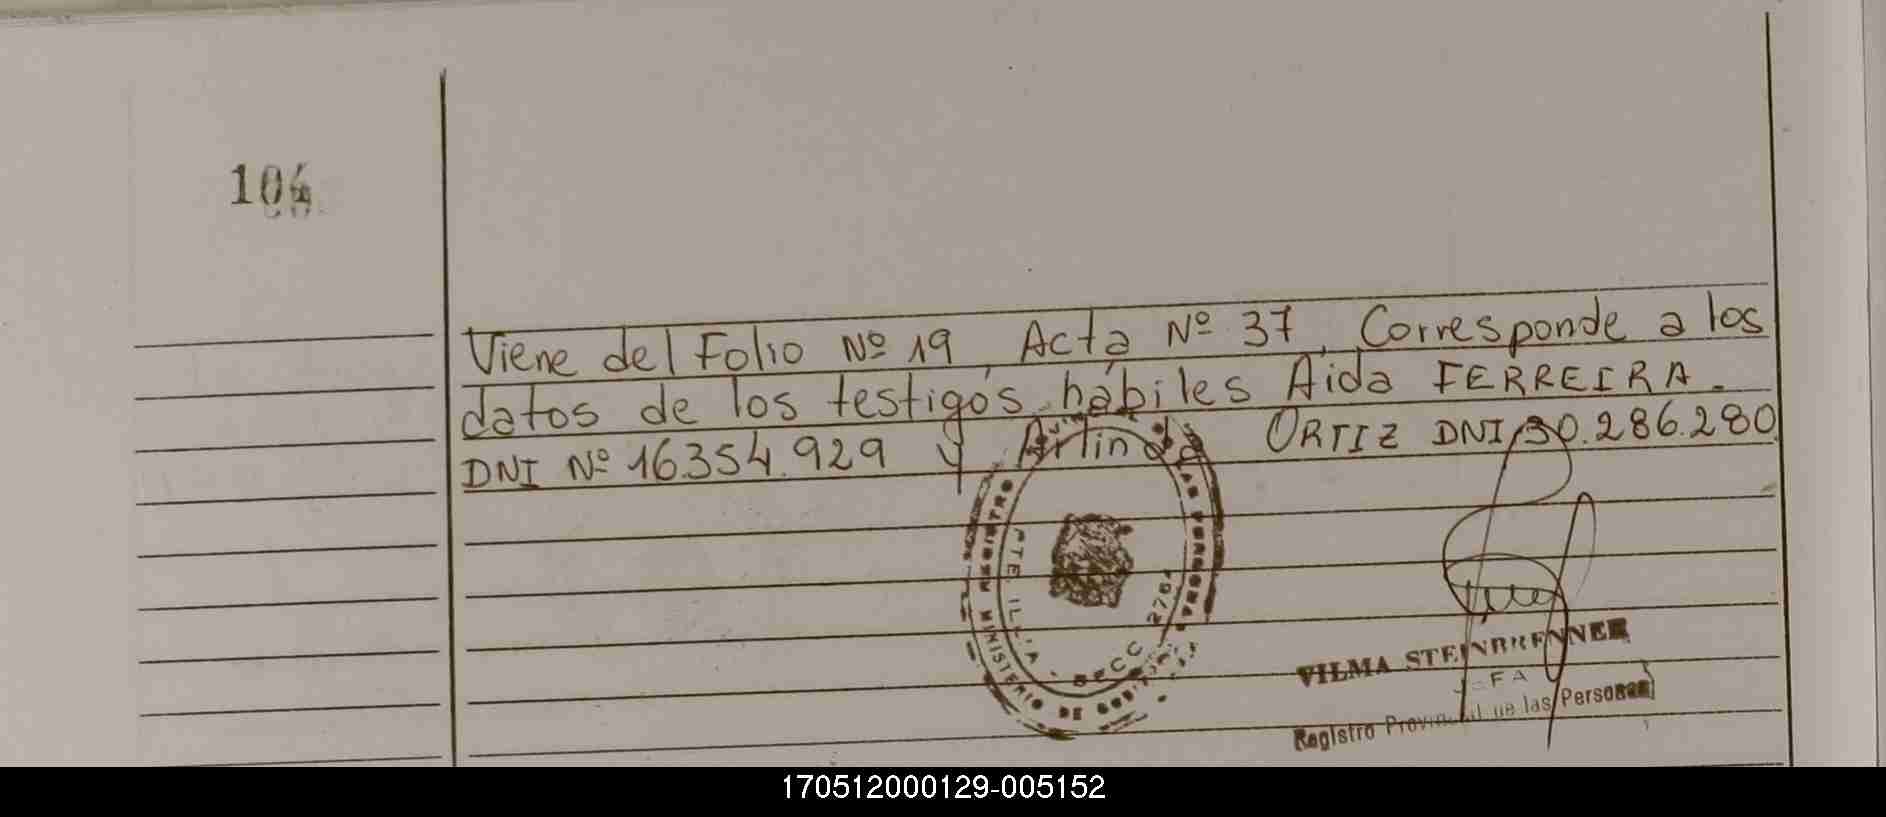 104
Viene del Folio Nº 19, Acta Nº 37, Corresponde a los
datos de los testigos hábiles Aida FERREIRA.
DNI Nº 16.354.929 y Arlinda ORTIZ DNI 30.286.280
MINISTERIO DE REGISTRO PERSONAS
PTE. ILLIA - SECC. 2764
VILMA STEINBRENNER
JEFA
Registro Provincial de las Personas
170512000129-005152